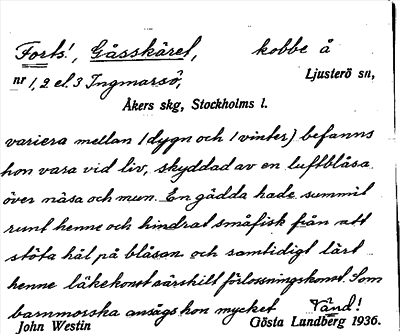 Forts!, Gåsskäret, kobbe å
nr 1, 2 el. 3 Ingmarsö, Ljusterö sn,
Åkers skg, Stockholms l.
variera mellan 1 dygn och 1 vinter) befanns
hon vara vid liv, skyddad av en luftblåsa
över näsa och mun. En gädda hade summit
runt henne och hindrat småfisk från att
stöta hål på blåsan och samtidigt lärt
henne läkekonst särskilt förlossningskonst. Som
barnmorska ansågs hon mycket Vänd!
John Westin Gösta Lundberg 1936.